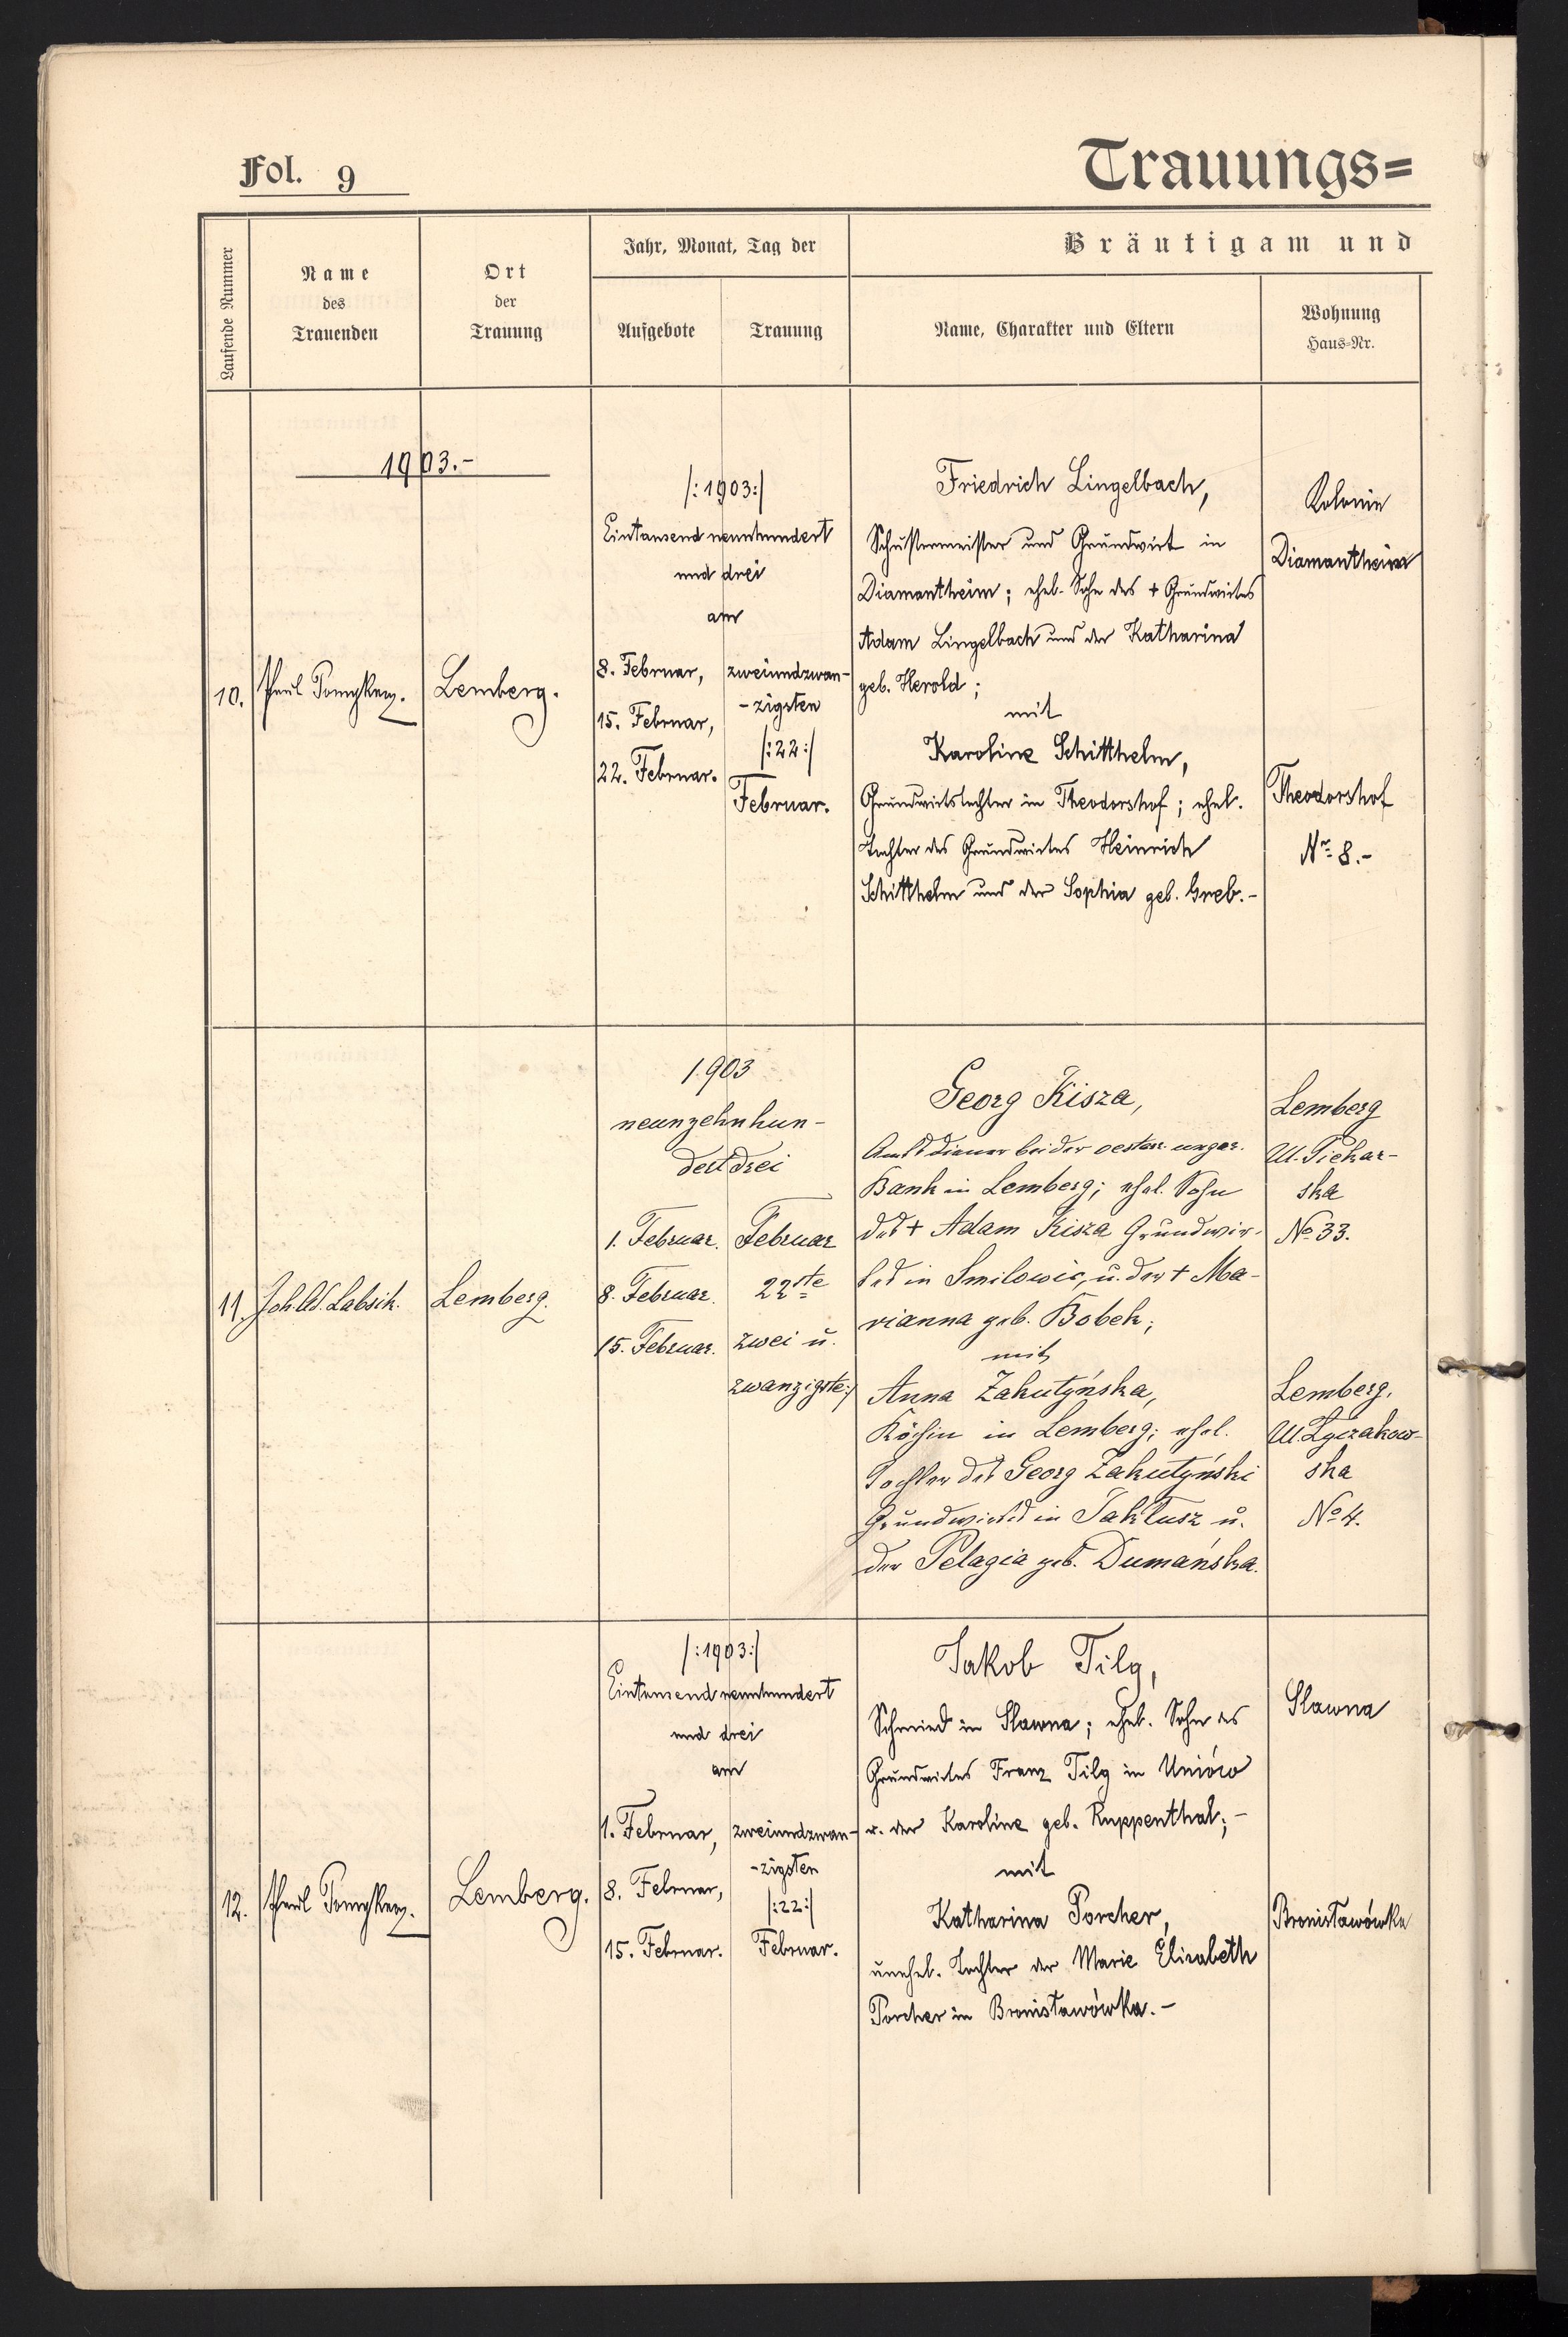 Fol. 9
Trauungs=
Laufende Nummer
Name
des
Trauenden
Ort
der
Trauung
Jahr, Monat, Tag der
Aufgebote
Trauung
Bräutigam und
Name, Charakter und Eltern
Wohnung
Haus-Nr.
1903.-
10.
Lemberg.
/:1903:/
Eintausend neunhundert
und drei
am
8. Februar,
15. Februar,
22. Februar.
zweiundzwan-
-zigsten
/:22:/
Februar.
Friedrich Lingelbach,
Schustermeister und Grundwirt in
Diamantheim; ehel. Sohn des + Grundwirtes
Adam Lingelbach und der Katharina
geb. Herold;
mit
Karoline Schitthelm,
Grundwirtstochter in Theodorshof; ehel.
Tochter des Grundwirtes Heinrich
Schitthelm und der Sophia geb. Greb.-
Kolonie
Diamantheim
Theodorshof
Nr. 8.-
11.
Joh. Labsik.
Lemberg.
1903
neunzehnhun-
dert drei
1. Februar.
8. Februar.
15. Februar.
Februar
22ste
zwei u.
zwanzigste:/
Georg Kisza,
Amtsdiener bei der oesterr. ungar.
Bank in Lemberg; ehel. Sohn
des + Adam Kisza Grundwir-
tes in Smilowic, u. der + Ma-
rianna geb. Bobek;
mit
Anna Zakutyńska,
Köchin in Lemberg; ehel.
Tochter des Georg Zakutyński
Grundwirtes in Jaktusz u.
der Pelagia geb. Dumańska.
Lemberg
Ul. Piekar-
ska
No 33.
Lemberg.
Ul. Łyczakow-
ska
No 4.
12.
Lemberg.
/:1903:/
Eintausend neunhundert
und drei
am
1. Februar,
8. Februar,
15. Februar.
zweiundzwan-
-zigsten
/:22:/
Februar.
Jakob Tilg,
Schmied in Sławna; ehel. Sohn des
Grundwirtes Franz Tilg in Uniów
u. der Karoline geb. Ruppenthal;-
mit
Katharina Porcher,
unehel. Tochter der Marie Elisabeth
Porcher in Bronisławówka.-
Sławna
Bronisławówka